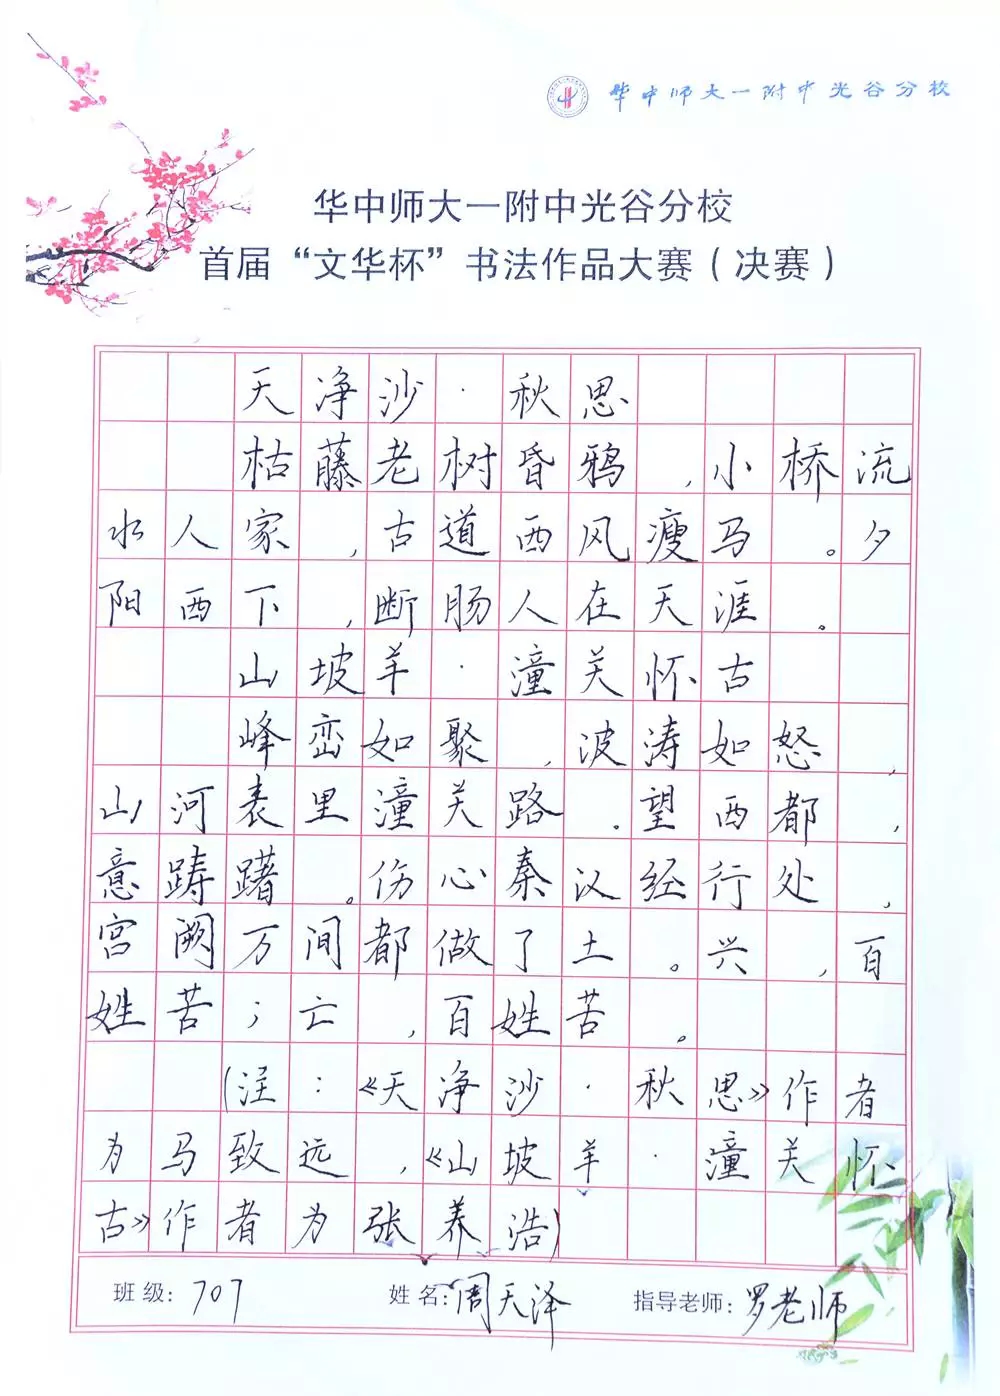 华中师大一附中光谷分校
华中师大一附中光谷分校
首届“文华杯”书法作品大赛（决赛）
天净沙·秋思
枯藤老树昏鸦，小桥流
水人家，古道西风瘦马。夕
阳西下，断肠人在天涯。
山坡羊·潼关怀古
峰峦如聚，波涛如怒，
山河表里潼关路。望西都，
意踌躇。伤心秦汉经行处，
宫阙万间都做了土。兴，百
姓苦；亡，百姓苦。
(注：《天净沙·秋思》作者
为马致远，《山坡羊·潼关怀
古》作者为张养浩)
班级：707 姓名：周天泽 指导老师：罗老师